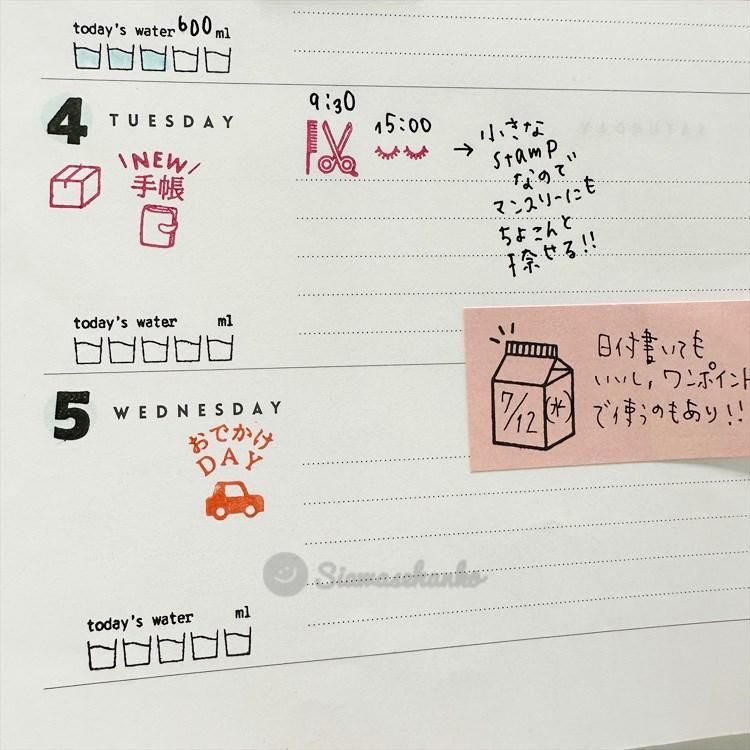 today's water 600 ml
4 TUESDAY
9:30
15:00
→ 小さな
stamp
なので
マンスリーにも
ちょこんと
押せる!!
\NEW/
手帳
today's water ml
日付書いても
いいし、ワンポイント
で使うのもあり!!
7/12 (水)
5 WEDNESDAY
おでかけ
DAY
Siawasehanko
today's water ml